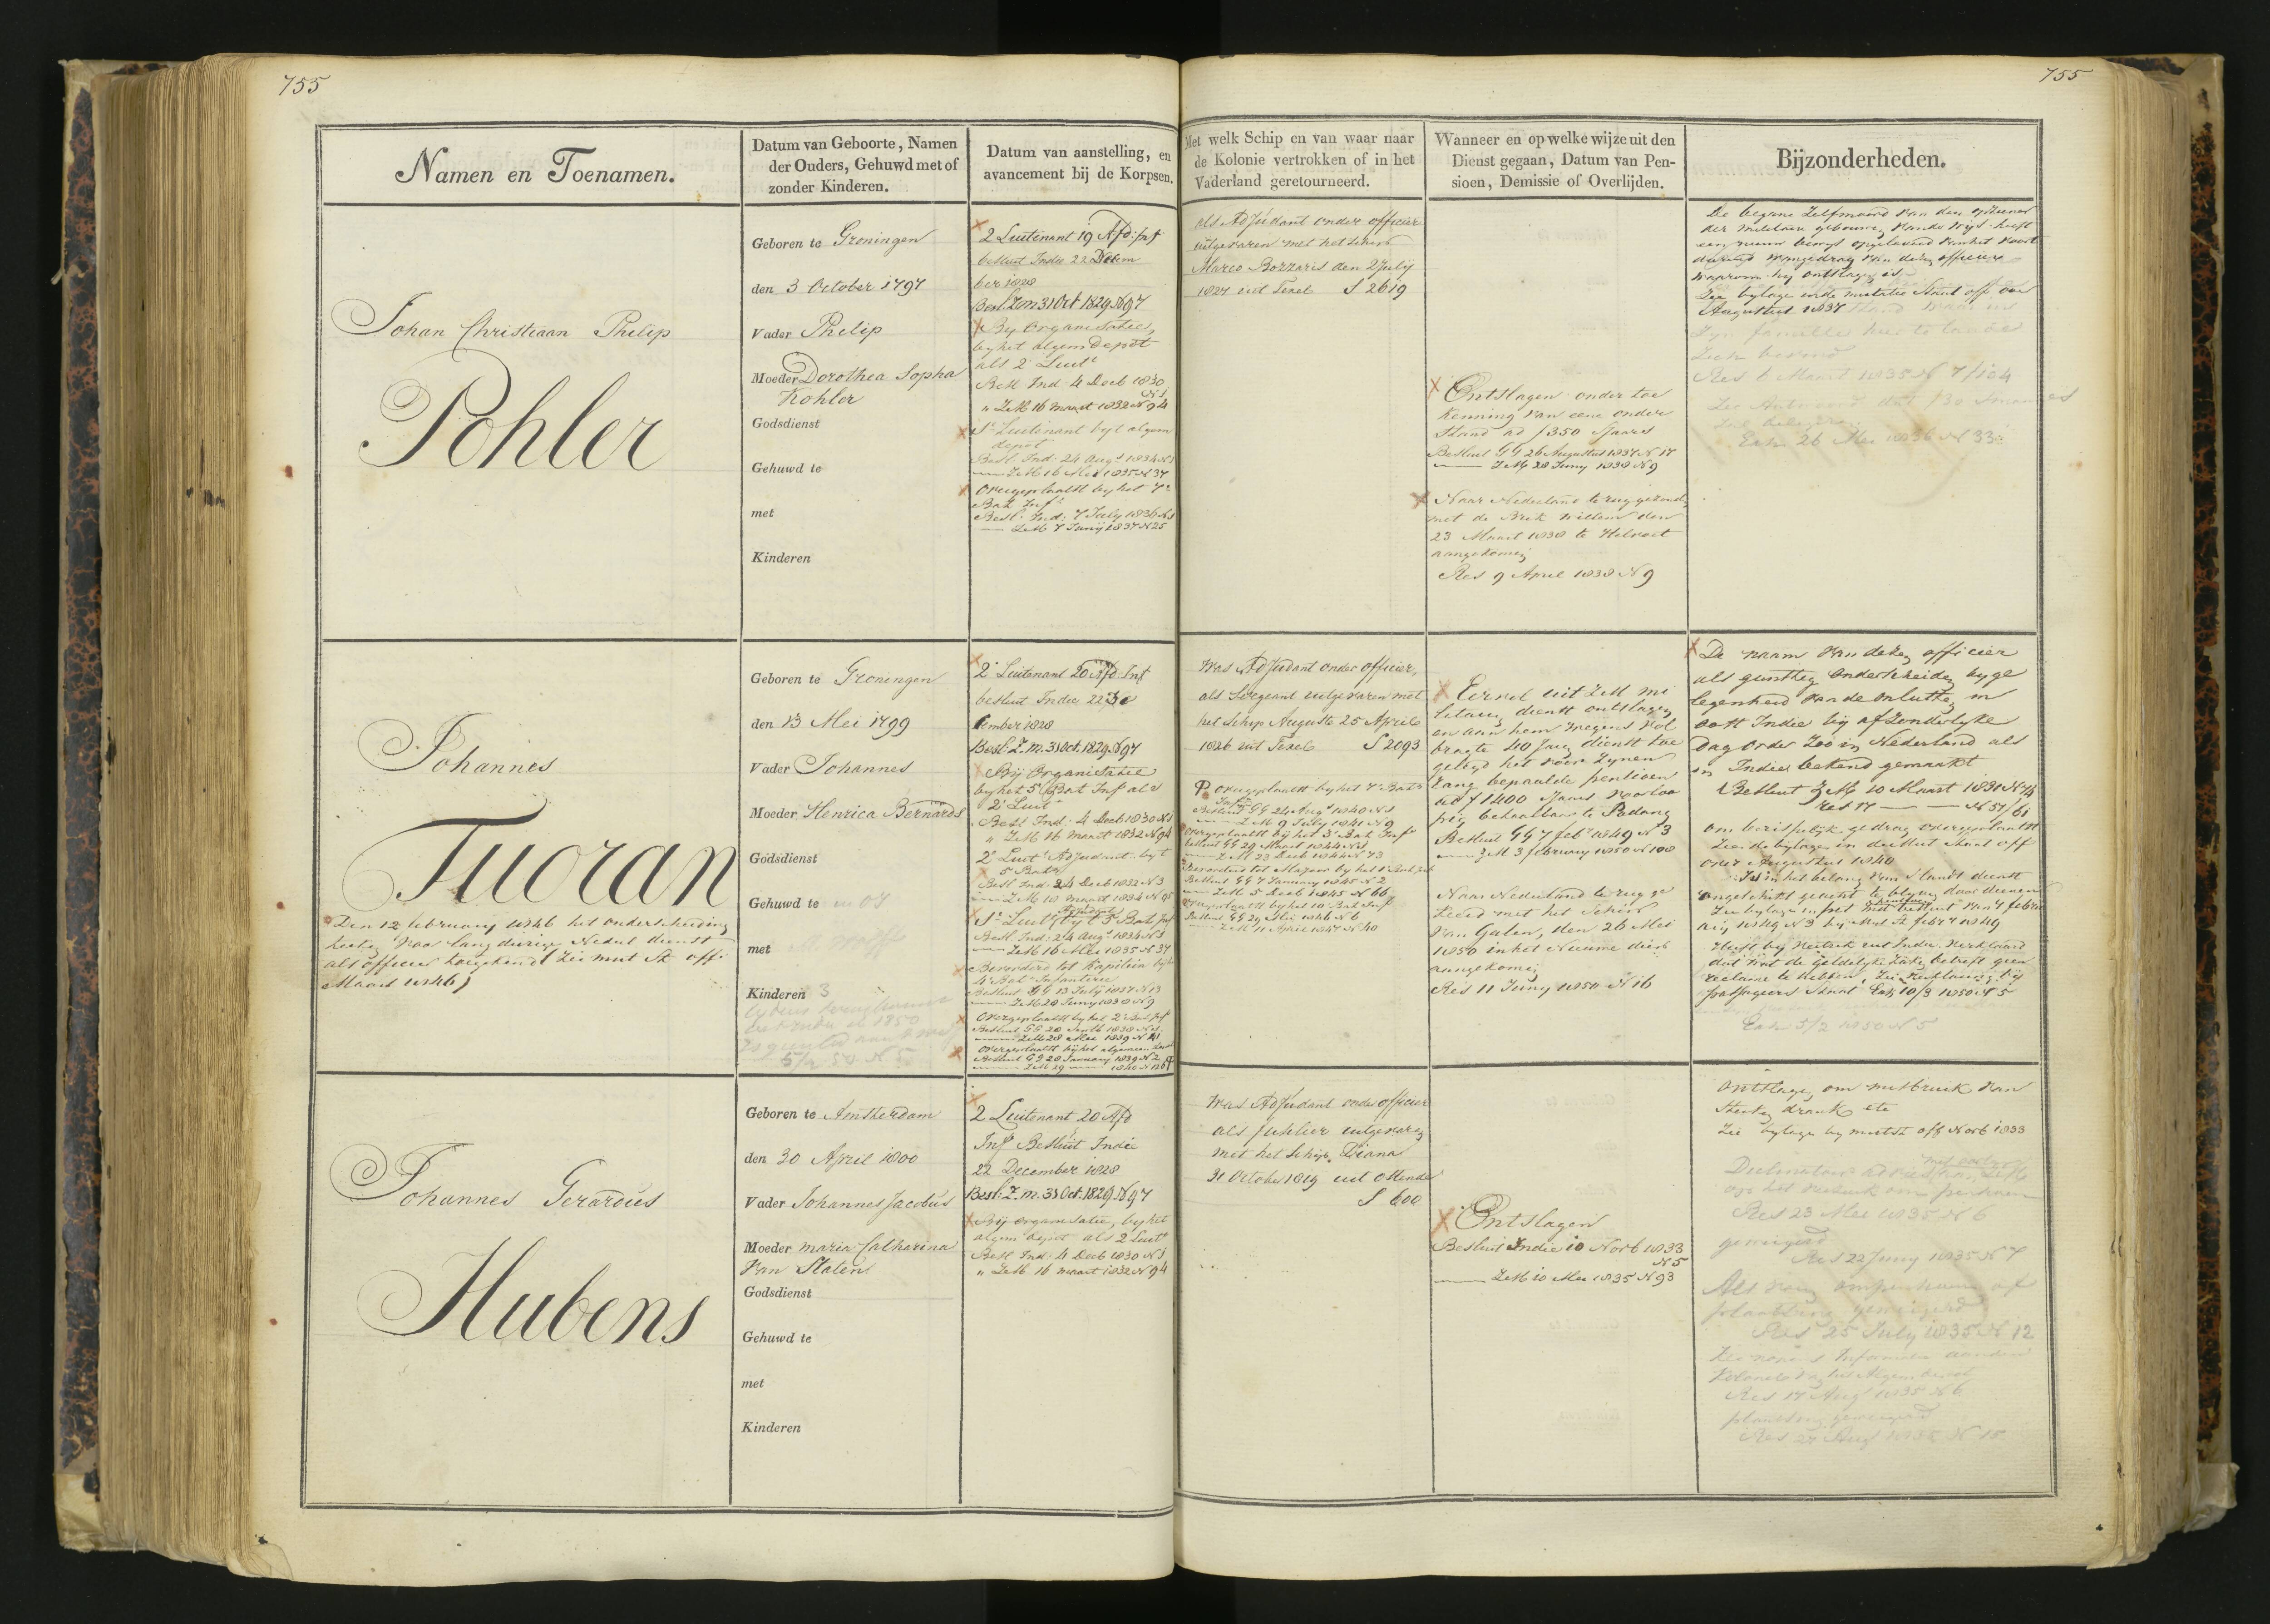 755
755
Namen en Toenamen.
Datum van Geboorte, Namen
der Ouders, Gehuwd met of
zonder Kinderen.
Datum van aanstelling, en
avancement bij de Korpsen.
Met welk Schip en van waar naar
de Kolonie vertrokken of in het
Vaderland geretourneerd.
Wanneer en op welke wijze uit den
Dienst gegaan, Datum van Pen-
sioen, Demissie of Overlijden.
Bijzonderheden.
Johan Christiaan Philip
Pohler
Geboren te Groningen
den 3 October 1797
Vader Philip
Moeder Dorothea Sopha
Kohler
Godsdienst
Gehuwd te
met
Kinderen
2 Luitenant 19 Afd: Inf
besluit Indie 22 Decem
ber 1828
Besl: Z.m. 31 Oct. 1829 N 97
By organisatie
by het algem Depot
als 2 Luit
Besl Ind 4 Decb 1830
N 1
" ZM 16 maart 1832 N 94
1e Luitenant by t algem
depot
Besl. Ind: 24 Augt 1834 N 1
ZM 16 Mei 1835 N 37
Overgeplaatst by het 7e
Bat Inf
Besl. Ind: 7 July 1836 N 1
ZM 7 Juny 1837 N 25
als Adjudant onder officier
uitgevaren met het schip
Marco Bozzaris den 2 July
1827 uit Texel S 2619
Ontslagen onder toe
kenning van eene onder
stand ad f 350 Jaars
Besluit GG 26 Augustus 1837 N 17
ZM 28 Juny 1838 N 9
Naar Nederland terug gezonden
met de Brik Willem den
23 Maart 1838 te Helvoet
aangekomen
Res 9 April 1838 N 9
De begane Zelfmoord van den opziener
der militaire gebouwen heeft
een nieuw bewys opgeleverd van het voort
durend wangedrag van dezen officier
waarom hy ontslagen is
Zie bylage in de mutatie Staat off over
Augustus 1837
Zyn familie hier te lande
Res 6 Maart 1835 N 7/104
Exh 26 Mei 1836 N 33
Johannes
Tuoran
Den 12 february 1846 het onderscheiding
teeken voor lang durige Nederl dienst
als officier toegekend (Zie mut St off
Maart 1846)
Geboren te Groningen
den 13 Mei 1799
Vader Johannes
Moeder Henrica Bernards
Godsdienst
Gehuwd te
met
Kinderen 3
5/2 50 N 5
2 Luitenant 20 Afd Inf
besluit Indie 22 De
cember 1828
Besl: Z.m. 31 Oct. 1829 N 97
Bij Organisatie
by het 5 Bat Inf als
2 Luit
Besl Ind: 4 Decb 1830 N 1
" ZM 16 maart 1832 N 94
2 Luit Adjudant by t
5 Bat
Besl Ind: 24 Decb 1832 N 3
ZM 10 maart 1834 N 95
1e Luit Adjud by t 5 Bat Inf
Besl Ind: 24 Augt 1834 N 1
ZM 16 Mei 1835 N 37
Bevorderd tot Kapitein by het
4 Bat Infanterie
Besluit GG 13 July 1837 N 13
ZM 28 Juny 1838 N 9
Overgeplaatst by het 2 Bat Inf
Besluit GG 20 Septb 1838 N 1
ZM 28 Mei 1839 N 41
Overgeplaatst by het algemeen depot
Besluit GG 28 January 1839 N 2
was Adjudant onder officier,
als Sergeant uitgevaren met
het Schip Augusta 25 April
1826 uit Texel S 2093
overgeplaatst by het 7 Bat
Inf
Besluit GG 24 Augt 1840 N 1
ZM 9 July 1841 N 9
Overgeplaatst by het 3 Bat Inf
Besluit GG 29 Maart 1844 N 1
ZM 23 Decb 1844 N 73
Bevorderd tot Majoor by het 1 Bat Inf
Besluit GG 7 January 1845 N 2
ZM 5 Decb 1845 N 66
overgeplaatst by het 10 Bat Inf
Besluit GG 29 Mei 1846 N 6
ZM 11 April 1847 N 40
Eervol uit ZM mi
litairen dienst ontslagen
en aan hem wegens vol
bragte 40 Jarig dienst toe
gelegd het voor zynen
rang bepaalde pensioen
ad f 1400 Jaars voorloo
pig betaalbaar te Padang
Besluit GG 7 feb 1849 N 3
ZM 3 february 1850 N 108
Naar Nederland terug ge
keerd met het Schip
van Galen, den 26 Mei
1850 in het Nieuwe diep
aangekomen
Res 11 Juny 1850 N 16
De naam van dezen officier
als gunstig onderscheiden by ge
legenheid van de onlusten in
oost Indie bij afzonderlyke
Dag order zoo in Nederland als
in Indie bekend gemaakt
Besluit ZM 10 Maart 1831 N 74
Res 17 N 57/61
om berispelyk gedrag overgeplaatst
Zie de bylage in de mut staat off
over Augustus 1840
Is in het belang van s Lands dienst
ongeschikt geacht te blyven door dienen
Zie bylage in het besluit van 7 febru
ary 1849 N 3 by Mut st febr 1849
Heeft by vertrek uit Indie verklaard
dat wat de geldelyke zake betreft geen
reclame te hebben, Zie verklaring by
passagiers Staat Exh 10/3 1850 N 5
Exh 5/2 1850 N 5
Johannes Gerardus
Hubens
Geboren te Amsterdam
den 30 April 1800
Vader Johannes Jacobus
Moeder maria Catharina
van Stalen
Godsdienst
Gehuwd te
met
Kinderen
2 Luitenant 20 Afd
Inf Besluit Indie
22 December 1828
Besl: Z.m. 31 Oct. 1829 N 97
Bij organisatie, by het
algem depot als 2 Luit
Besl Ind: 4 Decb 1830 N 1
" ZM 16 maart 1832 N 94
was Adjudant onder officier
als fuselier uitgevaren
met het Schip Diana
31 October 1819 uit Ostende
S 600
Ontslagen
Besluit Indie 10 Novb 1833
N 5
ZM 10 Mei 1835 N 93
Ontslagen om misbruik van
sterken drank etc
Zie bylage by mutst off Novb 1833
op het verzoek om pensioen
Res 23 Mei 1835 N 6
geweigerd
Res 22 Juny 1835 N 7
plaatsing geweigerd
Res 25 July 1835 N 12
Res 17 Augt 1835 N 6
plaatsing geweigerd
Res 27 Augt 1835 N 15